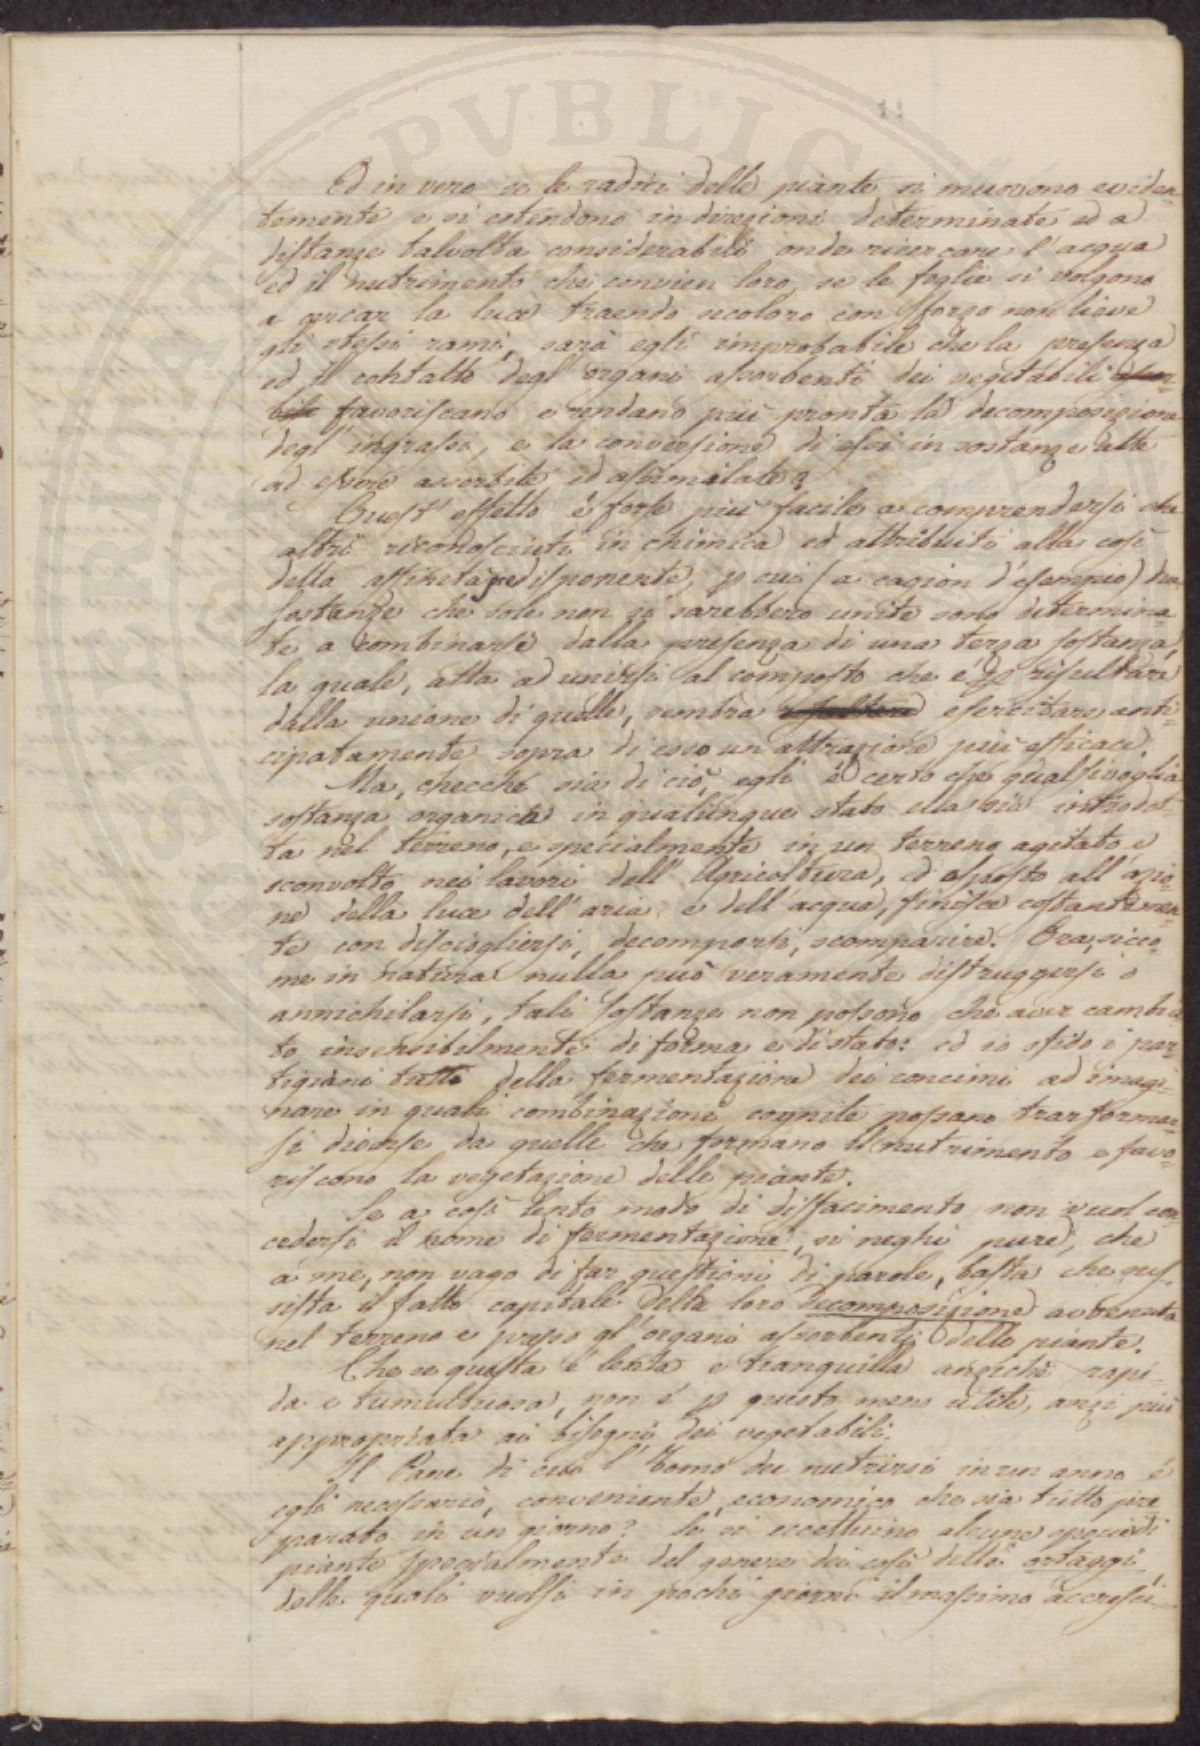 Ed in vero se le radici delle piante si muovono eviden-
temente e si estendono in direzioni determinate ed a
distanze talvolta considerabili onde ricercare l'acqua
ed il nutrimento che convien loro, se le foglie si volgono
a cercar la luce traendo secoloro con sforzo non lieve
gli stessi rami, sarà egli improbabile che la presenza
ed il contatto degl'organi assorbenti dei vegetabili
favoriscano e rendano più pronta la decomposizione
degl'ingrassi, e la conversione di essi in sostanze atte
ad essere assorbite ed assimilate?
Quest'effetto è forse più facile a comprendersi che
altri riconosciuti in chimica ed attribuiti alla così
detta affinità predisponente, p cui (a cagion d'esempio) due
sostanze che sole non si sarebbero unite sono determina-
te a combinarsi dalla presenza di una terza sostanza,
la quale, atta ad unirsi al composto che è p risultare
dalla unione di quelle, sembra esercitare anti-
cipatamente sopra di esso un attrazione più efficace.
Ma, checché sia di ciò, egli è certo che qualsivoglia
sostanza organica in qualunque stato ella sia introdot-
ta nel terreno, e specialmente in un terreno agitato e
sconvolto nei lavori dell'Agricoltura, ed esposto all'azio-
ne della luce dell'aria e dell'acqua, finisce costantemen-
te con disciogliersi, decomporsi, scomparire. Ora, sicco-
me in natura nulla può veramente distruggersi o
annichilarsi, tali sostanze non possono che aver cambia-
to insensibilmente di forma e di stato: ed io sfido i par-
tigiani tutti della fermentazione dei concimi ad imagi-
nare in quali combinazioni cognite possano trasformar-
si diverse da quelle che formano il nutrimento e favo-
riscono la vegetazione delle piante.
Se a così lento modo di disfacimento non vuol con-
cedersi il nome di fermentazione, si neghi pure, che
a me, non vago di far questioni di parole, basta che sus-
sista il fatto capitale della loro decomposizione avvenuta
nel terreno e presso gl'organi assorbenti delle piante.
Che se questa è lenta e tranquilla anziché rapi-
da e tumultuosa, non è p questo men utile, anzi più
appropriata ai bisogni dei vegetabili.
Il Pane di cui l'Uomo dee nutrirsi in un anno è
egli necessario, conveniente, economico che sia tutto pre
parato in un giorno? Se si eccettuino alcune specie di
piante specialmente del genere dei così detti ortaggi,
delle quali vuolsi in pochi giorni il massimo accresci-